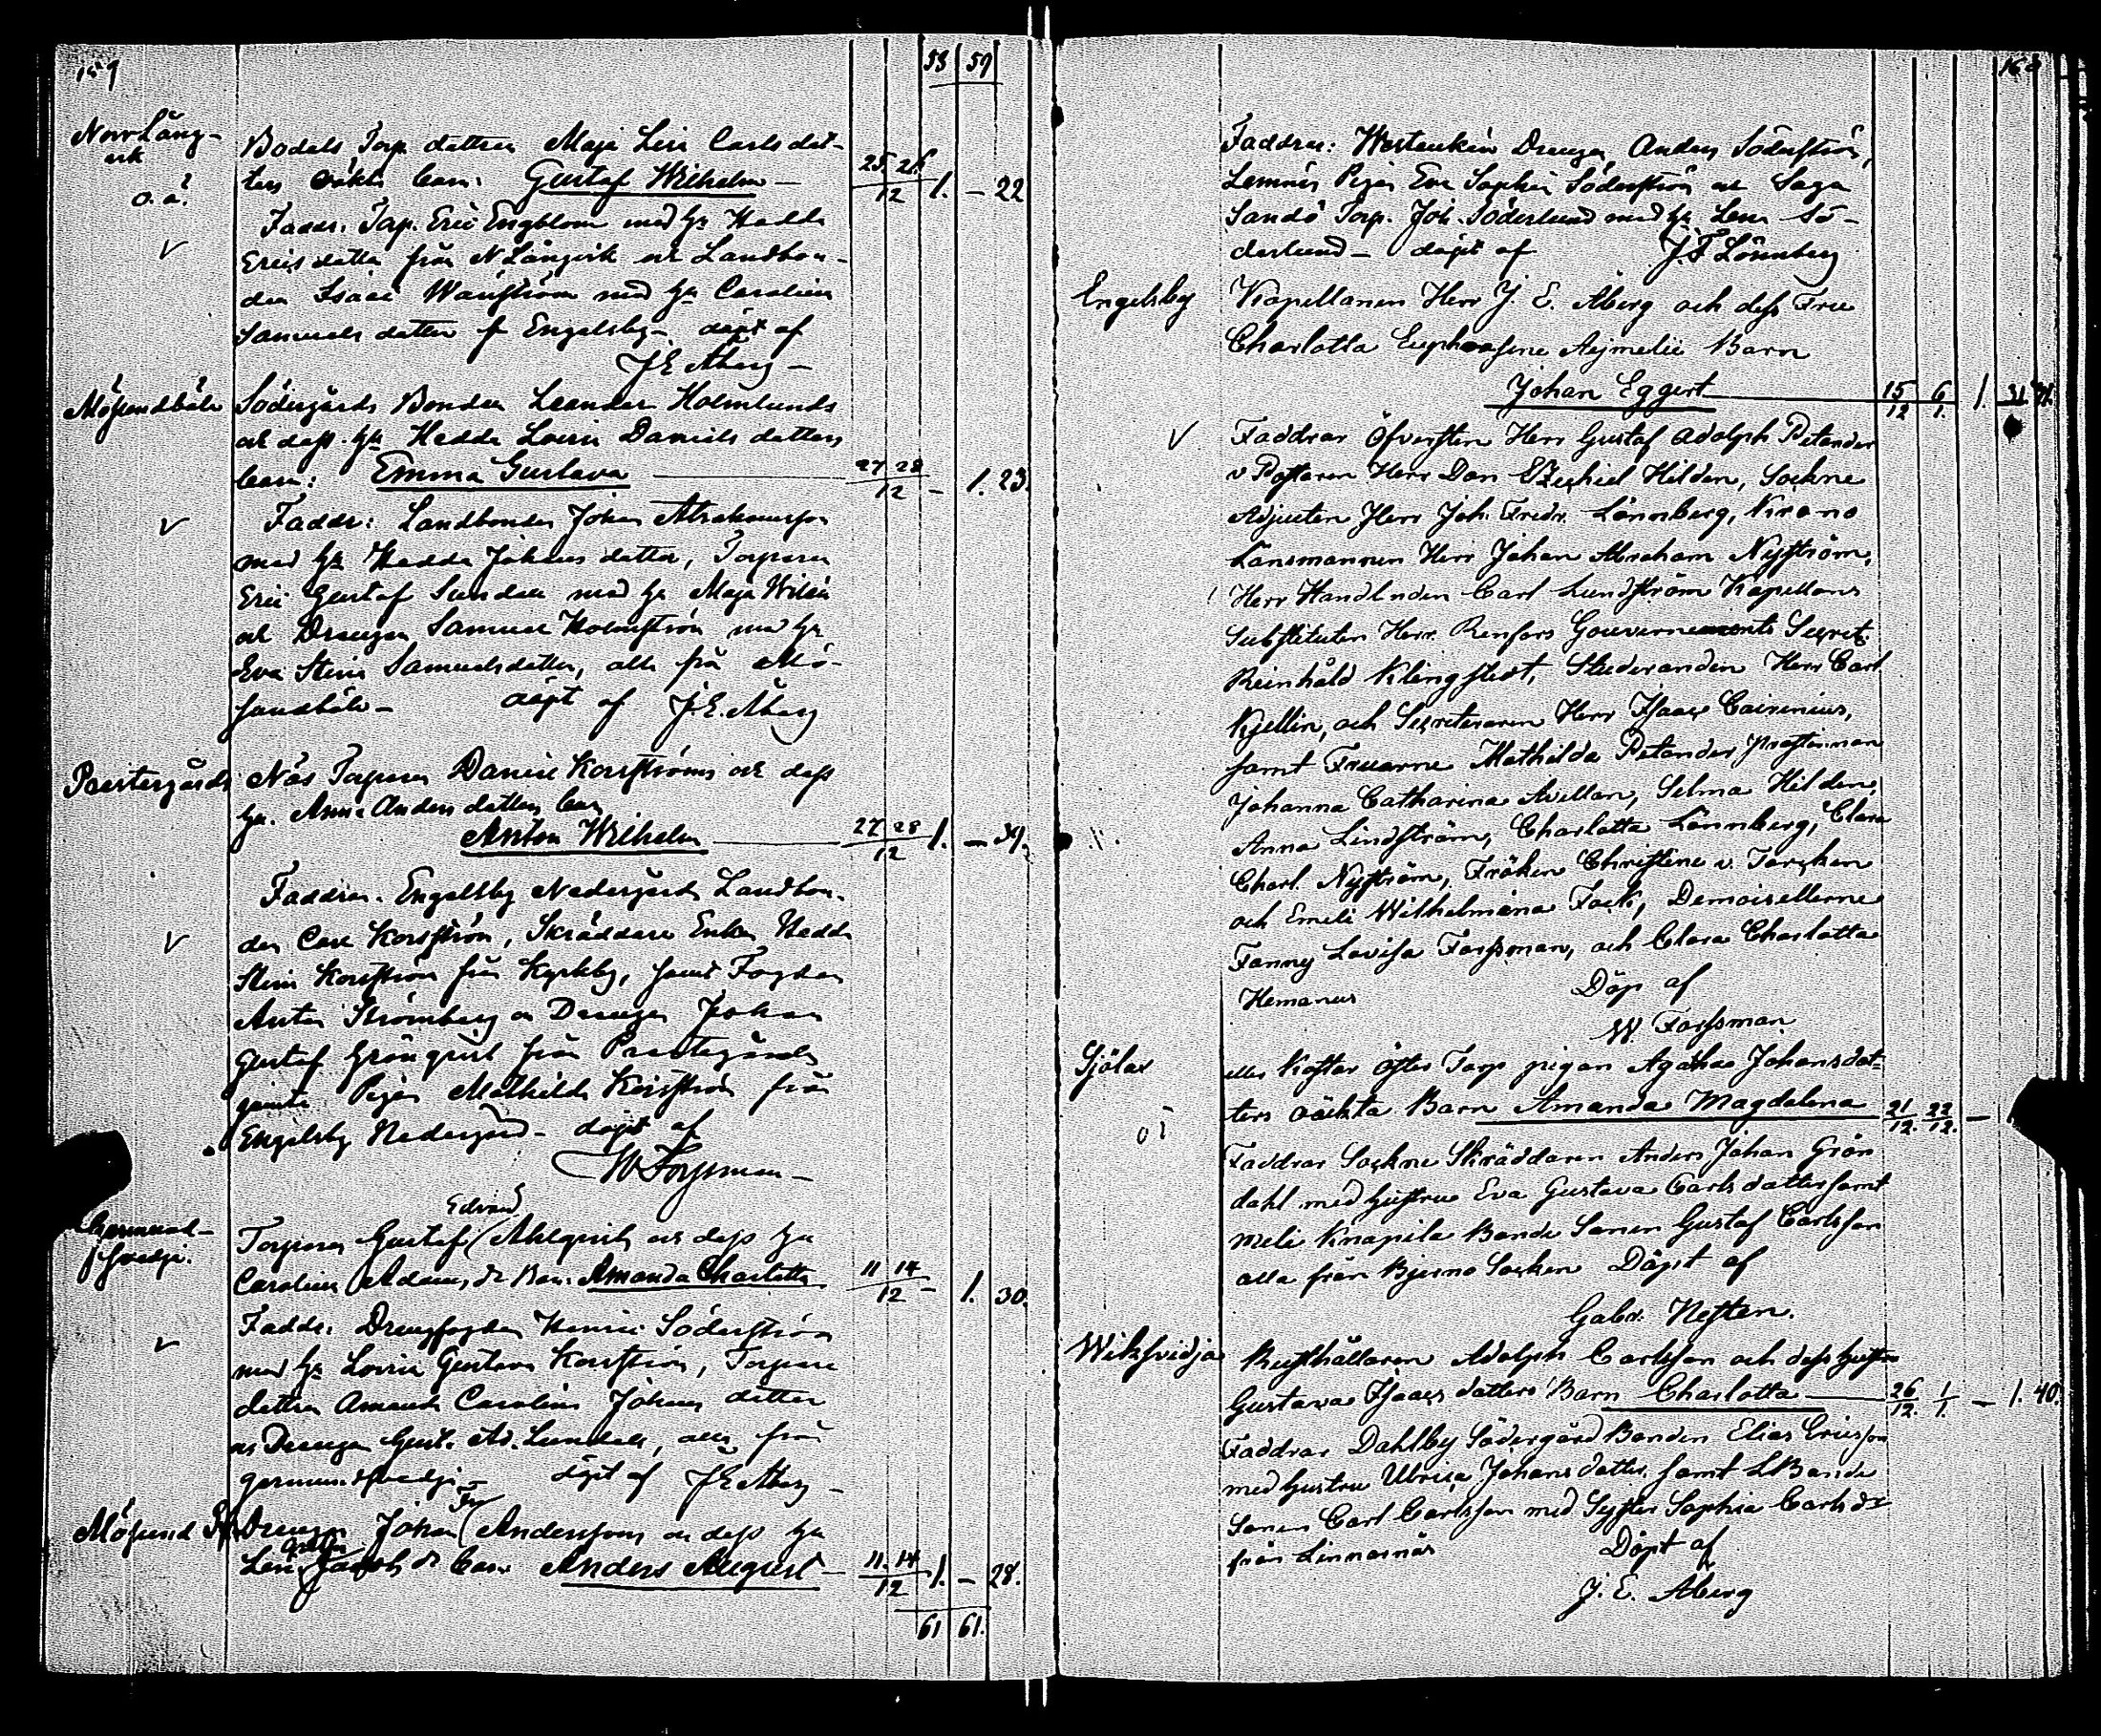 159
53 59
Norr Lång-
vik
o. ä.
Bodals Torp. dottren Maja Lisa Carls dot-
ters oäkta barn: Gustaf Wilhelm — 25 26/12 1. — 22
Faddr. Torp. Eric Engblom med h. Hedda
Ericsdotter från N Långvik och Landbon-
den Isaac Wänström med h. Carolina
Samuels dotter f. Engelsby – döpt af
J E Åberg –
Södergårds Bonden Leander Holmlunds
och dess h. Hedda Lovisa Daniels dotters
barn: Emma Gustava — 27 28/12 – 1. 23.
Faddr: Landbonden Johan Abrahamsson
med h. Hedda Johans dotter, Torparen
Eric Gustaf Sundell med h. Maja
och Drengen Samuel Holmström med h.
Eva Stina Samuelsdotter, alla från Mö-
sundböle – döpt af J. E. Åberg
Prestergårds
Näs Torparen Daniel Korsströms och dess
h. Anna Anders dotters barn
Anton Wilhelm — 27 28/12 1. – 39.
Faddrar. Engelsby Nedergårds Landbon-
den Carl Korsström, Skräddare Enkan Hedda
Stina Korsström från Kyrkby, samt Fogden
Anton Strömberg o Drengen Johan
Gustaf Grönqvist från Prestegården
jemte Pigan Mathilda Korsström från
Engelsby Nedergård – döpt af
W Forssman –
Edvard
Torparen Gustaf Ahlqvists och dess h.
Carolina Adams dr Barn Amanda Charlotta 11 14/12 – 1. 30.
Faddr. Drengfogden Henric Söderström
med h. Lovisa Gustava Korsström, Torpare
dottren Amanda Carolina Johans dotter
och Drengen Gust. Ad. Lundell, alla från
germundsvedja – döpt af J E Åberg –
Fr
Drengen Johan Anderssons och dess h.
Lena Jacobs dr barn Anders August – 11. 14/12 1. – 28.
61 61.
160
Faddrar: Drengen Anders Söderström,
Lemnäs Pigan Eva Sophia Söderström och Saga
Sandö Torp. Joh. Söderlund med h. Lena Sö-
derlund – döpt af J. F Lönnberg
Engelsby
Kapellanen Herr J. E. Åberg och dess Fru
Charlotta Euphrosine Aejmelii Barn
Johan Eggert — 15/12 6/1. 1. 31.
Faddrar Öfversten Herr Gustaf Adolph Petander
v Pastoren Herr Dan Ezechiel Hilden, Sockne
Adjuncten Herr Joh. Fredr. Lönnberg, Krono
Länsmannen Herr Johan Abraham Nyström,
Herr Handlnden Carl Lundström Kapellans
Substituten Herr Renfors Gouvernements Secret.
Reinhåld Klingstedt, Studeranden Herr Carl
Kjellin, och Secreteraren Herr Isaac Cairenius,
samt Fruarne Mathilda Petander, Prostinnan
Johanna Catharina Avellan, Selma Hilden,
Anna Lindström, Charlotta Lönnberg, Clara
Charl. Nyström, Fröken Christine v. Torcken
och Emeli Wilhelmina Fock, Demoisellerne
Fanny Lovisa Forssman, och Clara Charlotta
Hemanus Döp af
W. Forssman
Sjölax
eller Koftar öfter Torp pigan Agatha Johansdot-
ters oäckta Barn Amanda Magdalena 21/12. 22/12. –
Faddrar Sockne Skräddaren Anders Johan Grön
dahl med hustru Eva Gustava Carls dotter samt
meli Knapila Bonde Sonen Gustaf Carlsson
alla från Bjerno Socken Döpt af
Gabr. Nesten.
Wiksvidja
Rusthållaren Adolph Carlsson och dess hustru
Gustava Isaacs dotters Barn Charlotta — 26/12. 1/1. – 1. 40.
Faddrar Dahlby Södergård Bonden Elias Ericsson
med hustru Ulrica Johans dotter, samt LBonde
Sonen Carl Carlsson med Syster Sophia Carls dr
från Linnarnäs Döpt af
J. E. Åberg